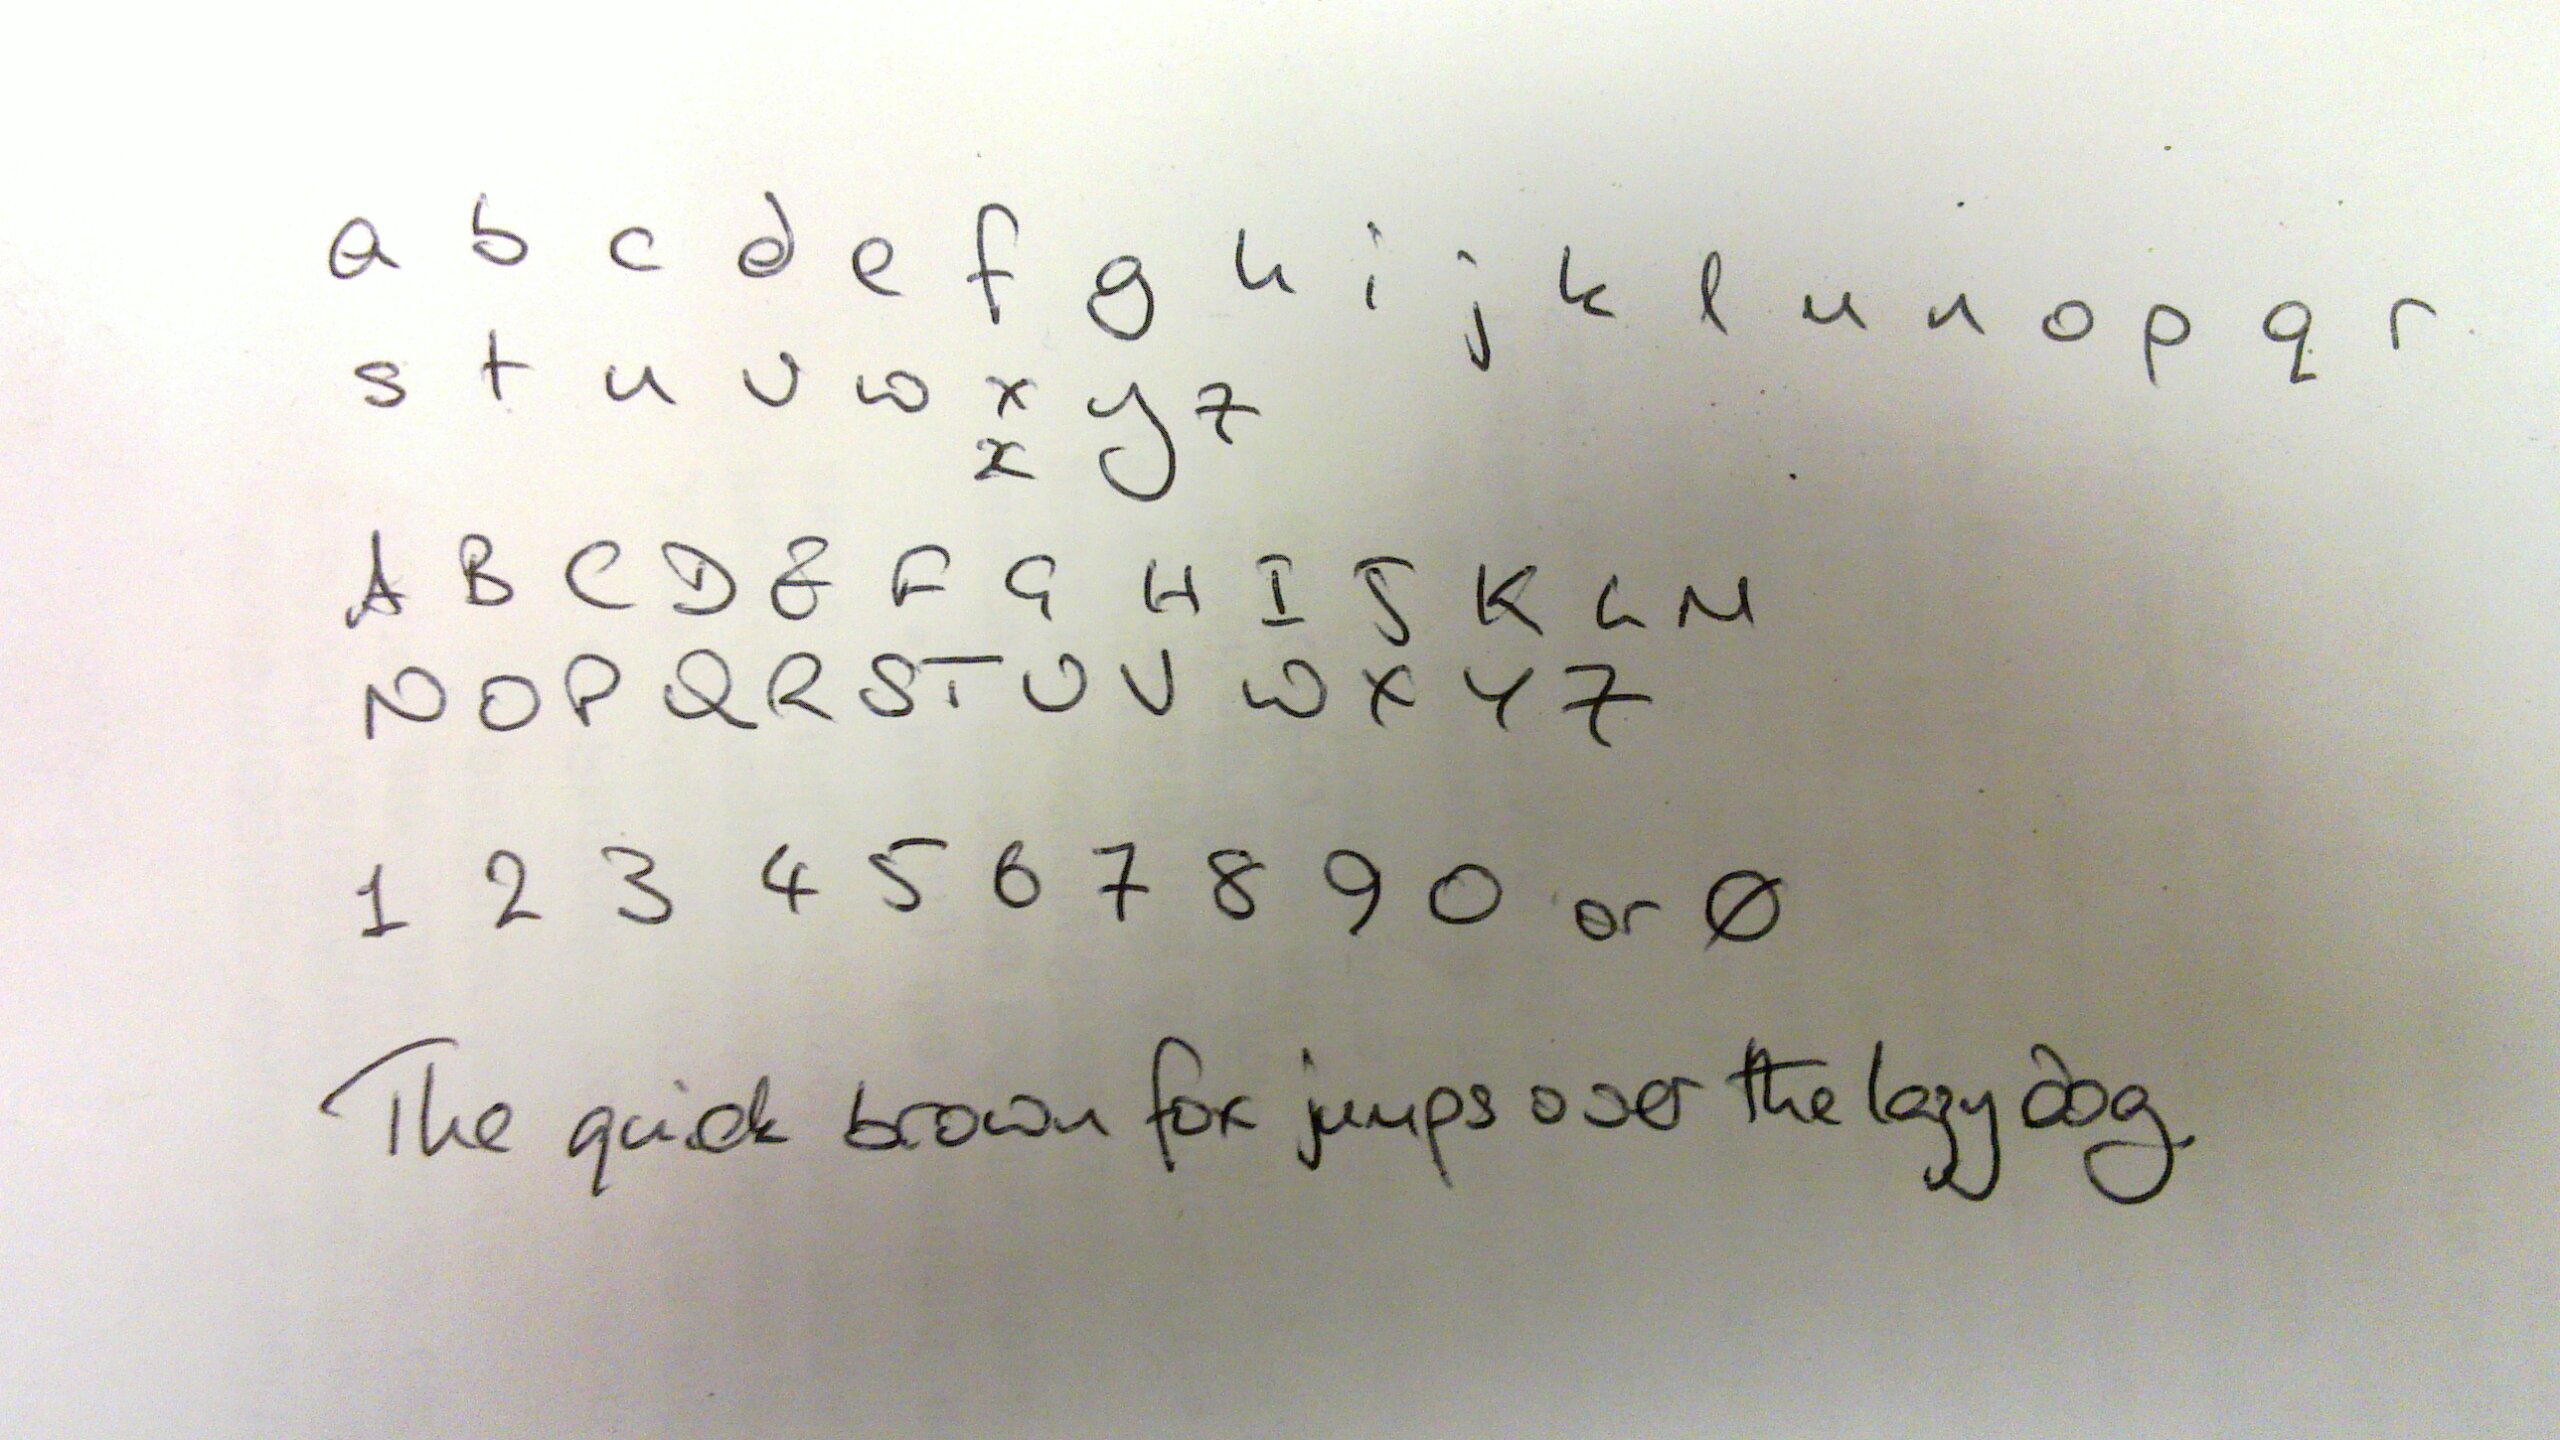 a b c d e f g h i j k l m n o p q r
s t u v w x y z
x
A B C D E F G H I J K L M
N O P Q R S T U V W X Y Z
1 2 3 4 5 6 7 8 9 0 or Ø
The quick brown fox jumps over the lazy dog